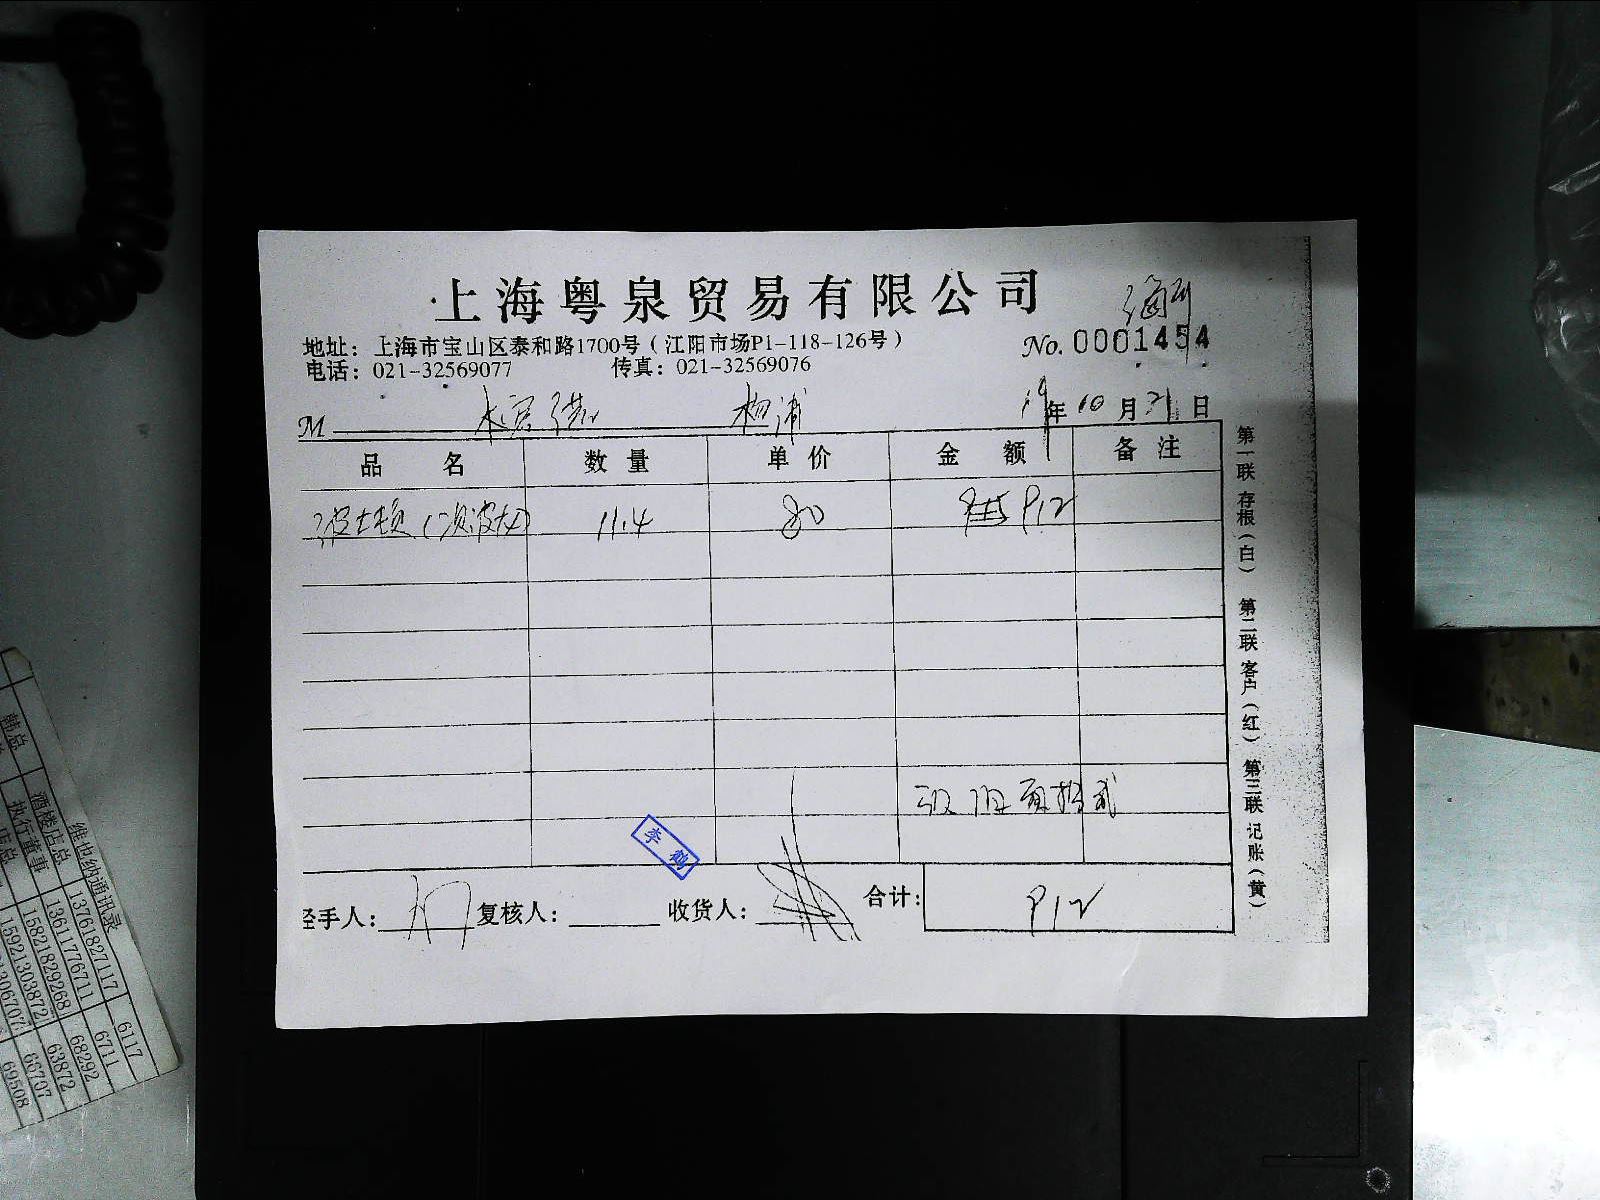 上海粤泉贸易有限公司
地址：上海市宝山区泰和路1700号（江阳市场P1-118-126号）
No. 0001454
电话：021-32569077 传真：021-32569076
M 杨浦 19年10月21日
品 名 数 量 单 价 金 额 备 注
波士顿 11.4 80 912
李鹤
经手人： 复核人： 收货人： 合计： 912
第一联 存根（白） 第二联 客户（红） 第三联 记账（黄）
维也纳通讯录
酒楼店总 13761827117 6117
执行董事 13611776711 6711
店总 15821829268 68292
15921303872 63872
韩总
66707
69508